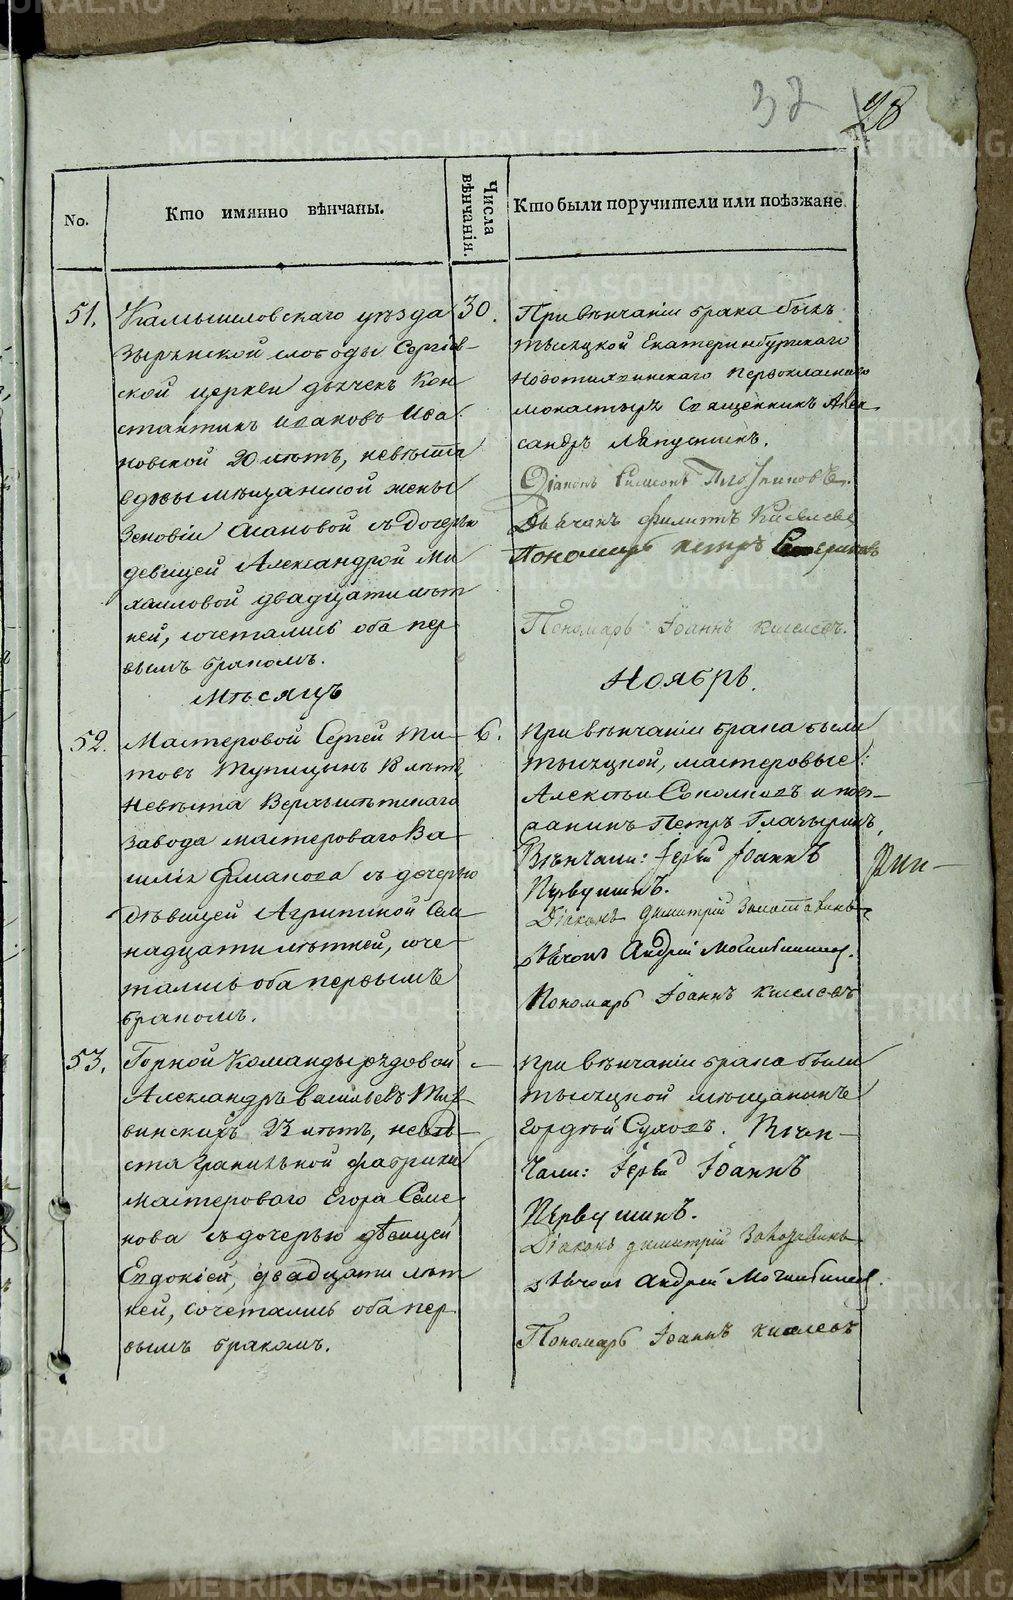 METRIKI.GASO-URAL.RU
37 28
No.
Кто имянно вѣнчаны.
Числа вѣнчанія.
Кто были поручители или поѣзжане.
51.
Камышловскаго уѣзда
Зырянской слободы Сергіев-
ской церкви дьячекъ Кон
стантинъ Ивановъ Ива
новской 20 лѣтъ, невѣста
вдовы мѣщанской жены
Зеновіи с дочерью
девицей Александрой Ми
хайловой двадцати лѣт
ней, сочетались оба пер
вымъ бракомъ.
30.
При вѣнчаніи брака былъ
тысяцкой Екатеринбургскаго
Новотихвинскаго Первокласнаго
монастыря Священникъ Алек
сандръ Ляпустинъ.
Діаконъ Симеонъ Плотниковъ.
Дьячекъ Филиппъ Киселевъ
Пономарь Петръ
Пономарь Іоаннъ Киселевъ.
Мѣсяцъ
Ноябрь.
52.
Мастеровой Сергей Ти-
товъ Тупицынъ лѣтъ,
невѣста Верхъисетскаго
завода мастероваго Ва-
силія с дочерью
дѣвицей Агрипиной Сем-
надцати лѣтней, соче-
тались оба первымъ
бракомъ.
6.
При вѣнчаніи брака были
тысяцкой, мастеровые:
Алексѣй Соколковъ и поез-
жанинъ Петръ
Вѣнчали: Іерей Іоаннъ
Первушинъ.
Діаконъ Димитрій
Дьячокъ Андрей
Пономарь Іоаннъ Киселевъ
53.
Горной Команды рядовой
Александръ Васильевъ
23 лѣтъ, невѣ-
ста гранильной фабрики
мастероваго Егора Семе
нова с дочерью дѣвицей
Евдокіей, двадцати лѣт
ней, сочетались оба пер
вымъ бракомъ.
–
При вѣнчаніи брака были
тысяцкой мѣщанинъ
Гордѣй Суховъ. Вѣнч-
чали: Іерей Іоаннъ
Первушинъ.
Діаконъ Димитрій
Дьячокъ Андрей
Пономарь Іоаннъ Киселевъ